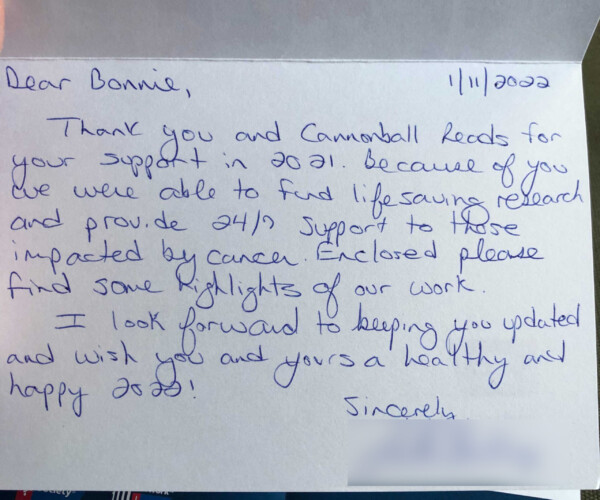 Dear Bonnie,
1/11/2022
Thank you and Cannonball Reads for
your support in 2021. Because of you
we were able to fund lifesaving research
and provide 24/7 support to those
impacted by cancer. Enclosed please
find some highlights of our work.
I look forward to keeping you updated
and wish you and yours a healthy and
happy 2022!
Sincerely